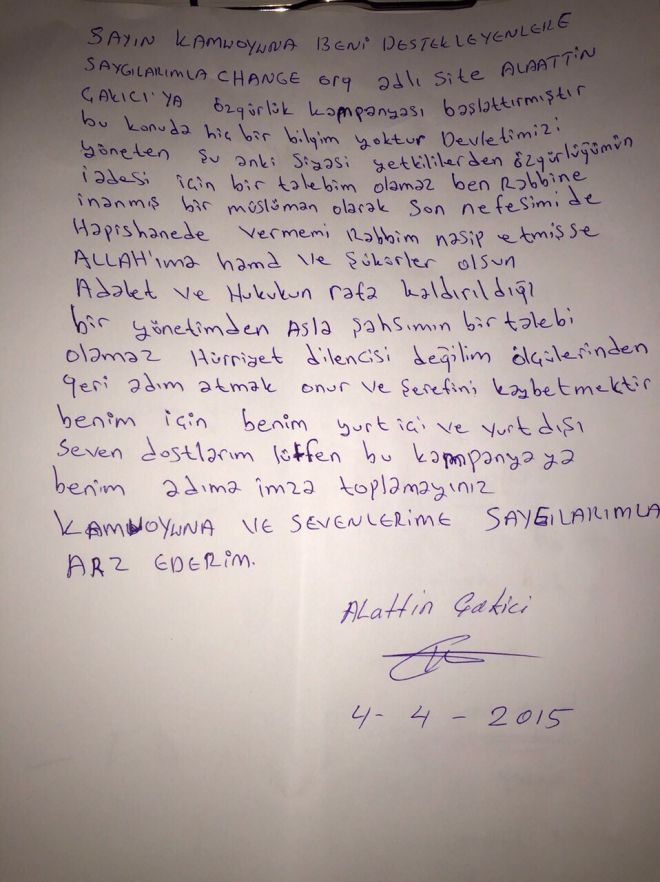 SAYIN KAMUOYUNA BENİ DESTEKLEYENLERE
SAYGILARIMLA CHANGE org adlı site ALAATTİN
ÇAKICI'YA özgürlük kampanyası başlattırmıştır
bu konuda hiç bir bilgim yoktur Devletimizi
yöneten şu anki siyasi yetkililerden özgürlüğümün
iadesi için bir talebim olamaz ben Rabbine
inanmış bir müslüman olarak son nefesimi de
Hapishanede vermemi Rabbim nasip etmişse
ALLAH'ıma hamd ve şükürler olsun
Adalet ve Hukukun rafa kaldırıldığı
bir yönetimden Asla şahsımın bir talebi
olamaz Hürriyet dilencisi değilim ölçülerinden
geri adım atmak onur ve şerefini kaybetmektir
benim için benim yurt içi ve yurt dışı
seven dostlarım lütfen bu kampanya ya
benim adıma imza toplamayınız
KAMUOYUNA VE SEVENLERİME SAYGILARIMLA
ARZ EDERİM.
ALattin Çakici
4- 4 - 2015